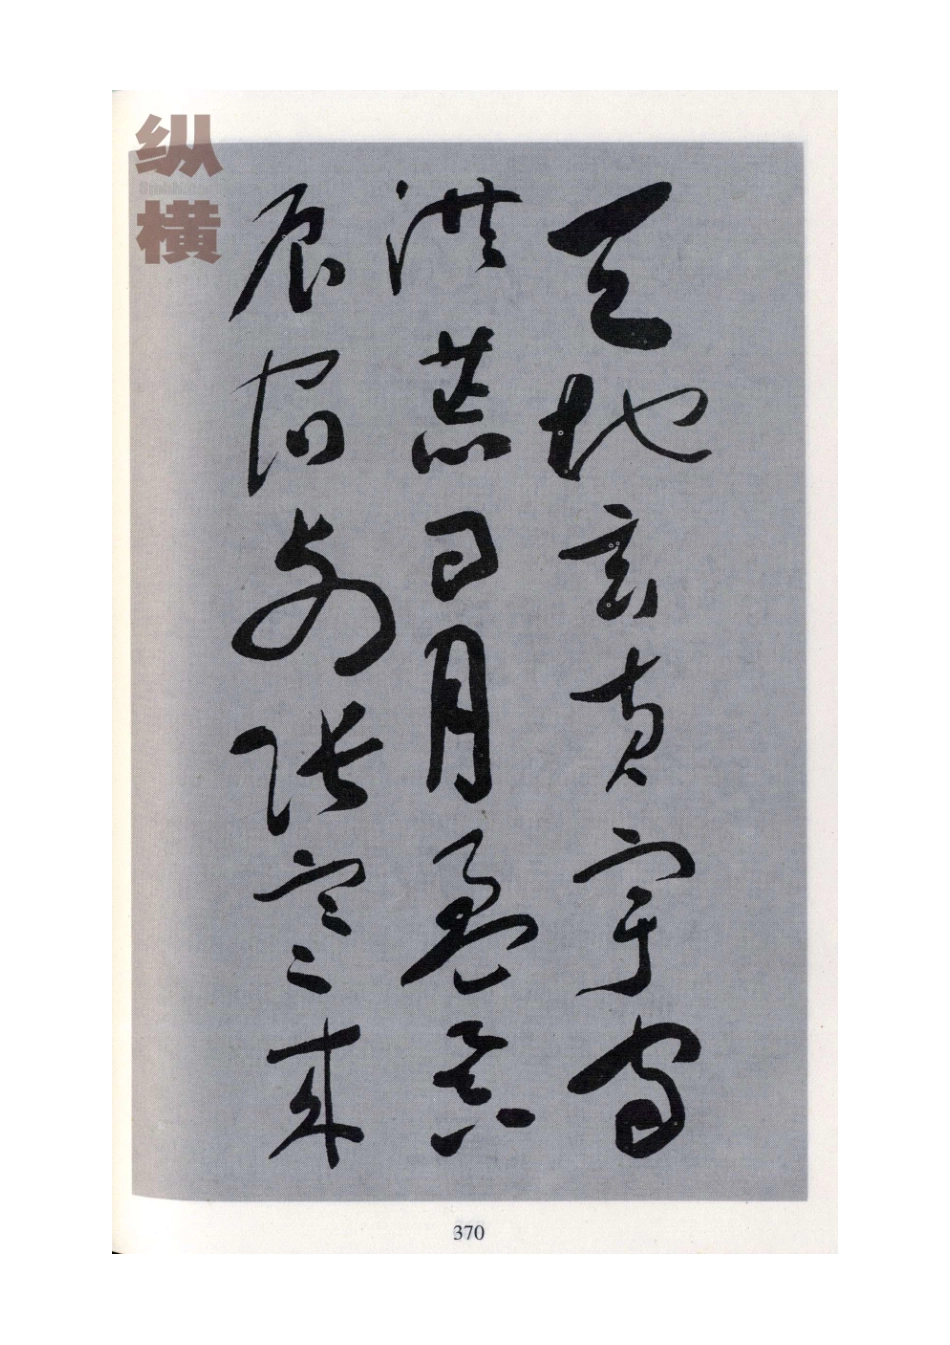 天地玄黄宇宙
洪荒日月盈昃
辰宿列张寒来
纵横
370